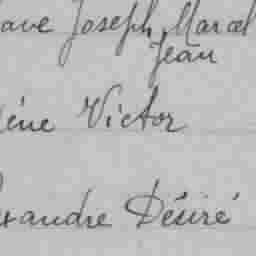 ave Joseph Marcel
Jean
ène Victor
exandre Désiré